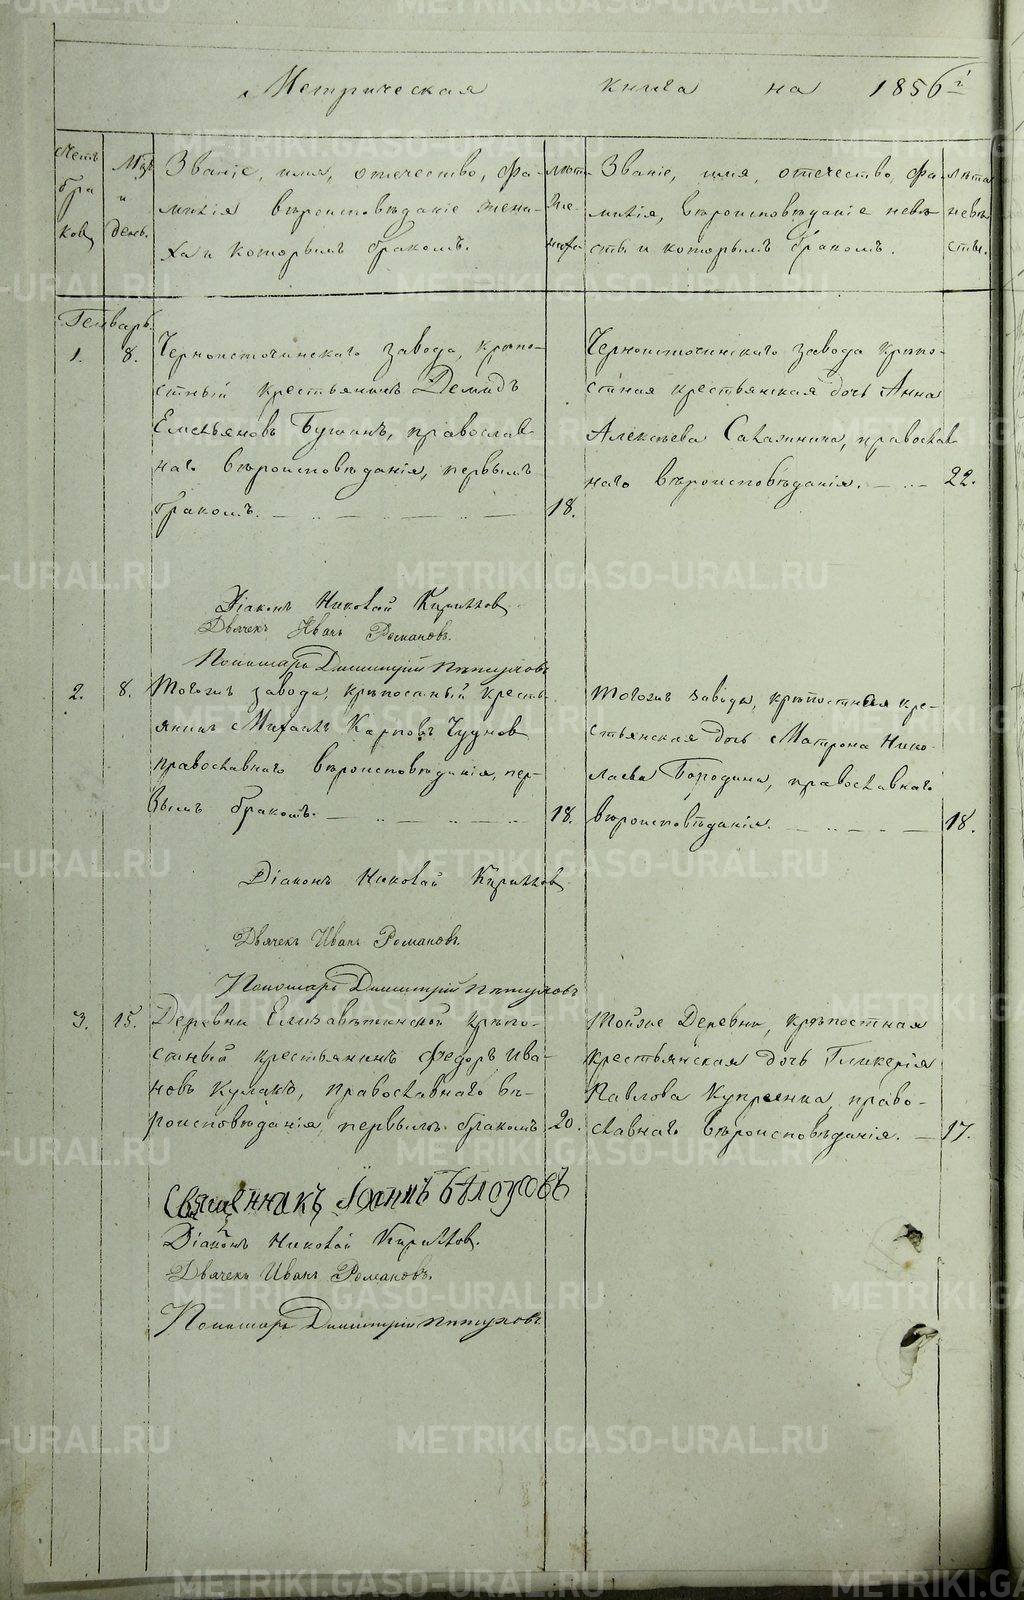 Метрическая книга на 1856 г.
Счетъ браковъ
Мѣс. и день.
Званіе, имя, отечество, фа-
милія вѣроисповѣданіе жени-
ха и которымъ бракомъ.
лѣта жениха
Званіе, имя, отечество, фа-
милія, вѣроисповѣданіе невѣ-
сты и которымъ бракомъ.
лѣта невѣсты.
Генварь.
1. 8. Черноисточинскаго завода, крѣпо-
стный крестьянинъ Демидъ
Емельяновъ Бушинъ, православ-
наго вѣроисповѣданія, первымъ
бракомъ. 18.
Черноисточинскаго завода крѣпо-
стная крестьянская дочь Анна
Алексѣева, православ-
наго вѣроисповѣданія. 22.
Діаконъ Николай Кириллов
Дьячекъ Иванъ Романовъ.
Пономарь Димитрій Пѣтуховъ
2. 8. Тогожъ завода, крѣпостный кресть-
янинъ Михаилъ Карповъ Чудновъ
православнаго вѣроисповѣданія, пер-
вымъ бракомъ. 18.
Тогожъ завода, крѣпостная кре-
стьянская дочь Матрона Нико-
лаева Бородина, православнаго
вѣроисповѣданія. 18.
Діаконъ Николай Кириллов
Дьячекъ Иванъ Романовъ.
Пономарь Димитрій Пѣтуховъ
3. 15. Деревни Елизаветинской крѣпо-
стный крестьянинъ Федоръ Ива-
новъ, православнаго вѣ-
роисповѣданія, первымъ бракомъ 20.
Тойже Деревни, крѣпостная
крестьянская дочь Гликерія
Павлова, право-
славнаго вѣроисповѣданія. 17.
Священникъ Іоаннъ Бѣлоусовъ
Діаконъ Николай Кириллов.
Дьячекъ Иванъ Романовъ.
Пономарь Димитрій Пѣтуховъ
METRIKI.GASO-URAL.RU